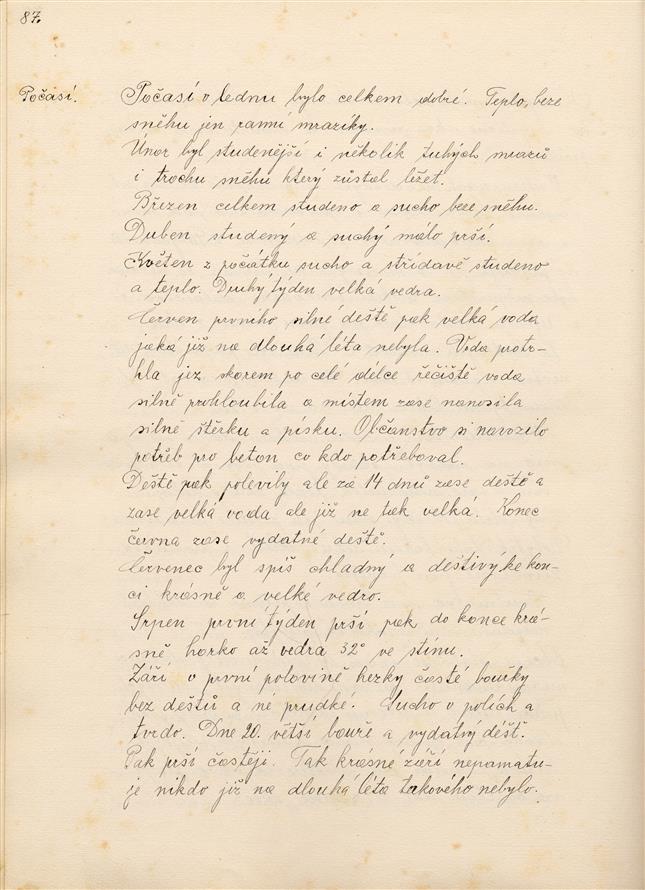 87.
Počasí.
Počasí v lednu bylo celkem dobré. Teplo, beze
sněhu jen ranní mrazíky.
Únor byl studenější i několik tuhých mrazů
i trochu sněhu který zůstal ležet.
Březen celkem studeno a sucho beze sněhu.
Duben studený a suchý málo prší.
Květen z počátku sucho a střídavě studeno
a teplo. Druhý týden velká vedra.
Červen prvního silné deště pak velká voda
jaká již na dlouhá léta nebyla. Voda protr-
hla jez skorem po celé délce řečiště voda
silně prohloubila a místem zase nanosila
silně štěrku a písku. Občanstvo si navozilo
potřeb pro beton co kdo potřeboval.
Deště pak polevily ale za 14 dnů zase deště a
zase velká voda ale již ne tak velká. Konec
června zase vydatné deště.
Červenec byl spíš chladný a deštivý, ke kon-
ci krásně a velké vedro.
Srpen první týden prší pak do konce krá-
sně horko až vedra 32° ve stínu.
Září v první polovině hezky časté bouřky
bez dešťů a né prudké. Sucho v polích a
tvrdo. Dne 20. větší bouře a vydatný déšť.
Pak prší častěji. Tak krásné září nepamatu-
je nikdo již na dlouhá léta takového nebylo.